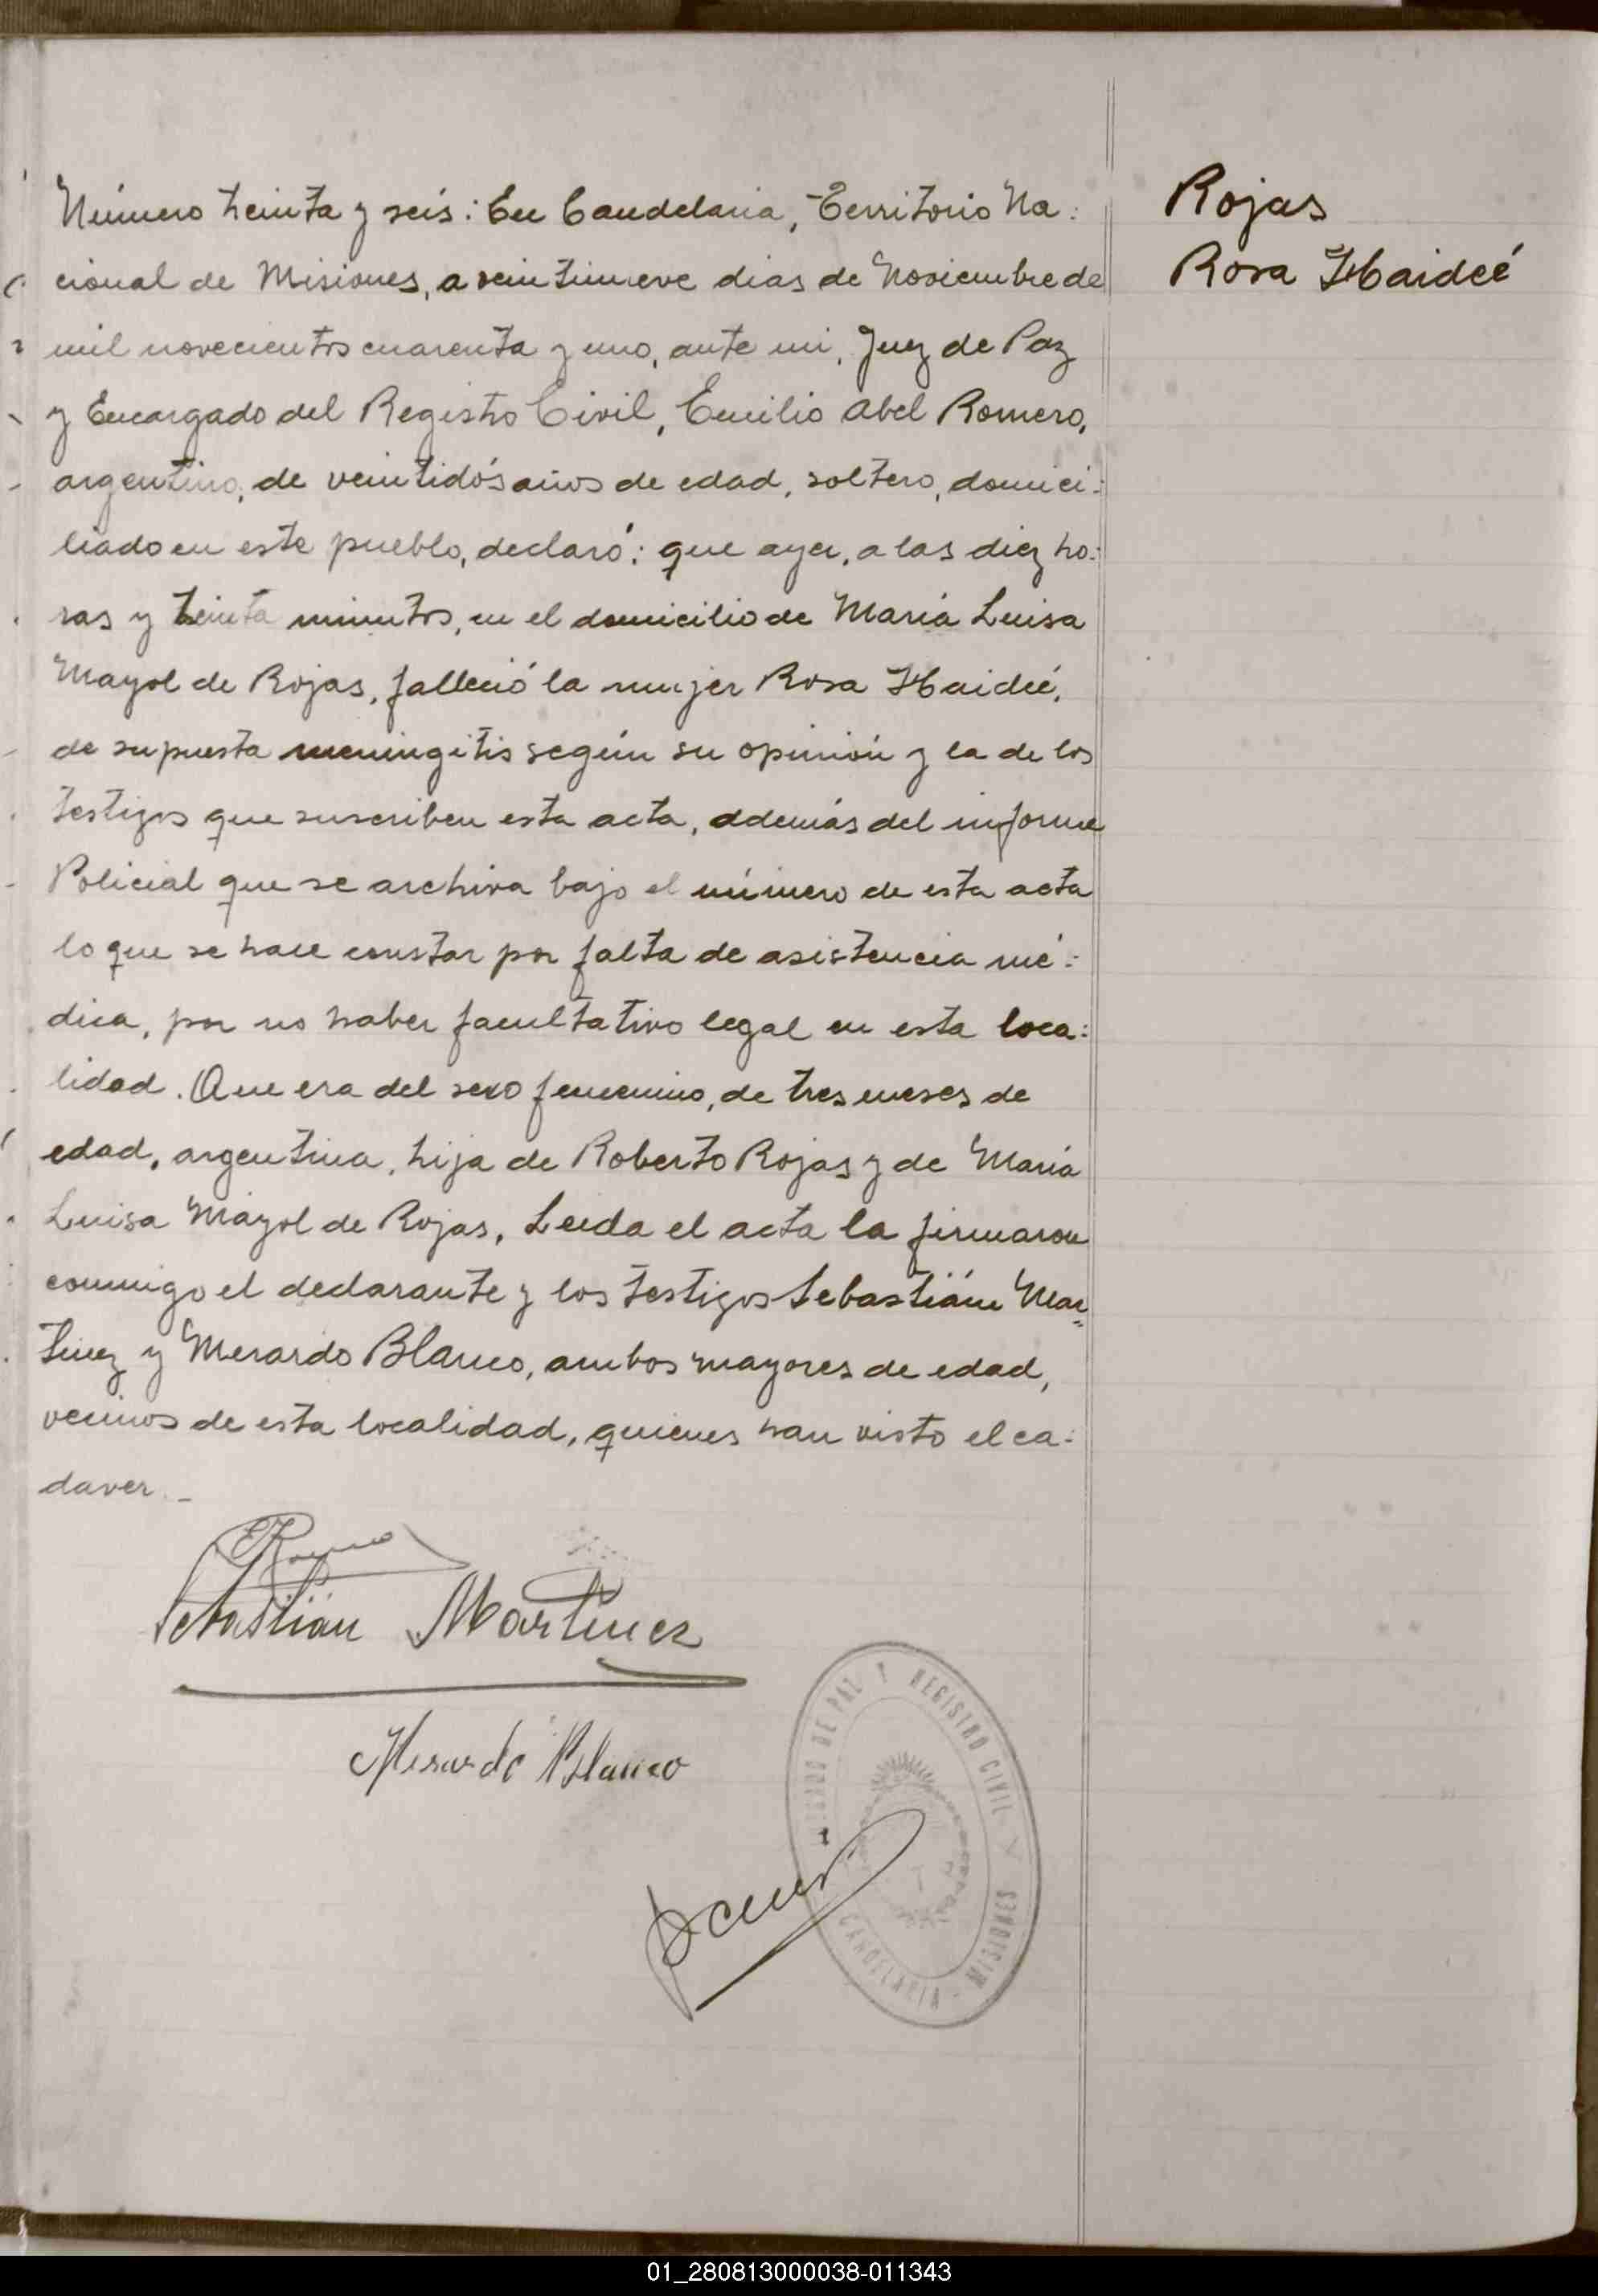 Número treinta y seis: En Candelaria, Territorio Na:
cional de Misiones, a veintinueve dias de Noviembre de
mil novecientos cuarenta y uno, ante mi, Juez de Paz
y Encargado del Registro Civil, Emilio Abel Romero,
argentino, de veintidós años de edad, soltero, domici:
liado en este pueblo, declaró: que ayer, a las diez ho:
ras y treinta minutos, en el domicilio de Maria Luisa
Mayol de Rojas, falleció la mujer Rosa Haideé,
de supuesta meningitis según su opinión y la de los
testigos que suscriben esta acta, además del informe
Policial que se archiva bajo el número de esta acta
lo que se hace constar por falta de asistencia mé:
dica, por no haber facultativo legal en esta loca:
lidad. Que era del sexo femenino, de tres meses de
edad, argentina, hija de Roberto Rojas y de Maria
Luisa Mayol de Rojas, Leida el acta la firmaron
conmigo el declarante y los testigos Sebastián Mar
tinez y Merardo Blanco, ambos mayores de edad,
vecinos de esta localidad, quienes han visto el ca:
daver._
Rojas
Rosa Haideé
ERomero
Sebastián Martinez
Merardo Blanco
JUZGADO DE PAZ Y REGISTRO CIVIL
CANDELARIA - MISIONES
01_280813000038-011343